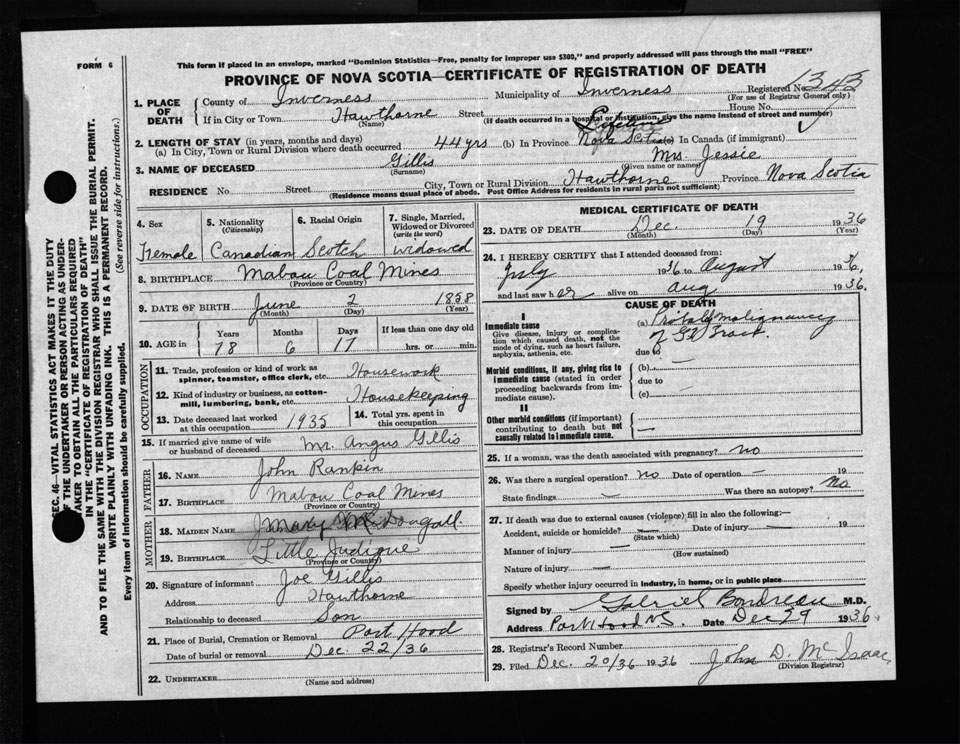 This form if placed in an envelope, marked "Dominion Statistics—Free, penalty for improper use $300," and properly addressed will pass through the mail "FREE"
FORM 6
PROVINCE OF NOVA SCOTIA—CERTIFICATE OF REGISTRATION OF DEATH
SEC. 46—VITAL STATISTICS ACT MAKES IT THE DUTY
OF THE UNDERTAKER OR PERSON ACTING AS UNDER-
TAKER TO OBTAIN ALL THE PARTICULARS REQUIRED
IN THE "CERTIFICATE OF REGISTRATION OF DEATH"
AND TO FILE THE SAME WITH THE DIVISION REGISTRAR WHO SHALL ISSUE THE BURIAL PERMIT.
WRITE PLAINLY WITH UNFADING INK. THIS IS A PERMANENT RECORD.
Every item of information should be carefully supplied. (See reverse side for instructions.)
1. PLACE OF DEATH
County of Inverness Municipality of Inverness Registered No. 1343
(For use of Registrar General only)
If in City or Town Hawthorne Street House No.
(Name) (If death occurred in a hospital or institution, give the name instead of street and number)
2. LENGTH OF STAY (in years, months and days) Lifetime
(a) In City, Town or Rural Division where death occurred 44 yrs (b) In Province Nova Scotia (c) In Canada (if immigrant)
3. NAME OF DECEASED Gillis Mrs. Jessie
(Surname) (Given name or names)
RESIDENCE No. Street City, Town or Rural Division Hawthorne Province Nova Scotia
(Residence means usual place of abode. Post Office Address for residents in rural parts not sufficient)
4. Sex Female
5. Nationality (Citizenship) Canadian
6. Racial Origin Scotch
7. Single, Married, Widowed or Divorced (write the word) widowed
8. BIRTHPLACE Mabou Coal Mines
(Province or Country)
9. DATE OF BIRTH June 2 1858
(Month) (Day) (Year)
10. AGE in Years 78 Months 6 Days 17 If less than one day old hrs. or min.
OCCUPATION
11. Trade, profession or kind of work as spinner, teamster, office clerk, etc. Housework
12. Kind of industry or business, as cotton-mill, lumbering, bank, etc. Housekeeping
13. Date deceased last worked at this occupation 1935
14. Total yrs. spent in this occupation
15. If married give name of wife or husband of deceased Mr. Angus Gillis
FATHER
16. NAME John Rankin
17. BIRTHPLACE Mabou Coal Mines
(Province or Country)
MOTHER
18. MAIDEN NAME Mary McDougall.
19. BIRTHPLACE Little Judique
(Province or Country)
20. Signature of informant Joe Gillis
Address Hawthorne
Relationship to deceased Son
21. Place of Burial, Cremation or Removal Port Hood
Date of burial or removal Dec. 22/36
22. UNDERTAKER
(Name and address)
MEDICAL CERTIFICATE OF DEATH
23. DATE OF DEATH Dec. 19 1936
(Month) (Day) (Year)
24. I HEREBY CERTIFY that I attended deceased from:
July 1936 to August 1936,
and last saw her alive on Aug 1936.
CAUSE OF DEATH
I
Immediate cause
Give disease, injury or complication which caused death, not the mode of dying, such as heart failure, asphyxia, asthenia, etc.
(a) Probable malignancy
of G.I. Tract.
due to —
Morbid conditions, if any, giving rise to immediate cause (stated in order proceeding backwards from immediate cause).
(b) —
due to —
(c)
II
Other morbid conditions (if important) contributing to death but not causally related to immediate cause. —
25. If a woman, was the death associated with pregnancy? no
26. Was there a surgical operation? no Date of operation — 19
State findings — Was there an autopsy? no
27. If death was due to external causes (violence) fill in also the following:—
Accident, suicide or homicide? — Date of injury — 19
(State which)
Manner of injury —
(How sustained)
Nature of injury —
Specify whether injury occurred in industry, in home, or in public place
Signed by Gabriel Boudreau M.D.
Address Port Hood N.S. Date Dec 29 1936
28. Registrar's Record Number
29. Filed Dec. 20/36 1936 John D. McIsaac
(Division Registrar)